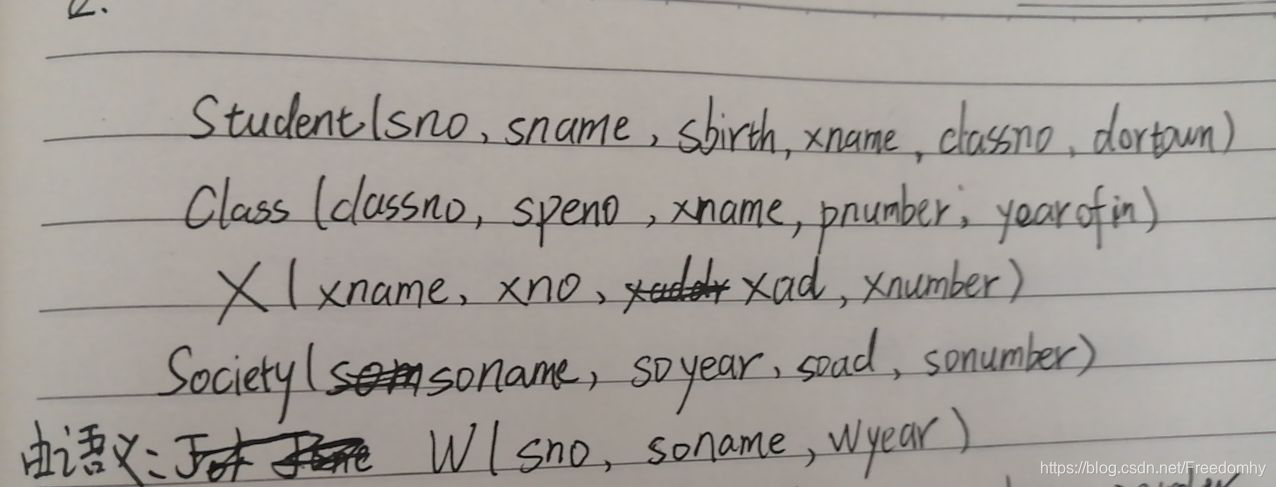 2.
Student(sno, sname, sbirth, xname, classno, dortown)
Class (classno, speno, xname, pnumber, yearofin)
X ( xname, xno, xad, xnumber)
Society( soname, soyear, soad, sonumber)
由语义: W( sno, soname, wyear)
https://blog.csdn.net/Freedomhy